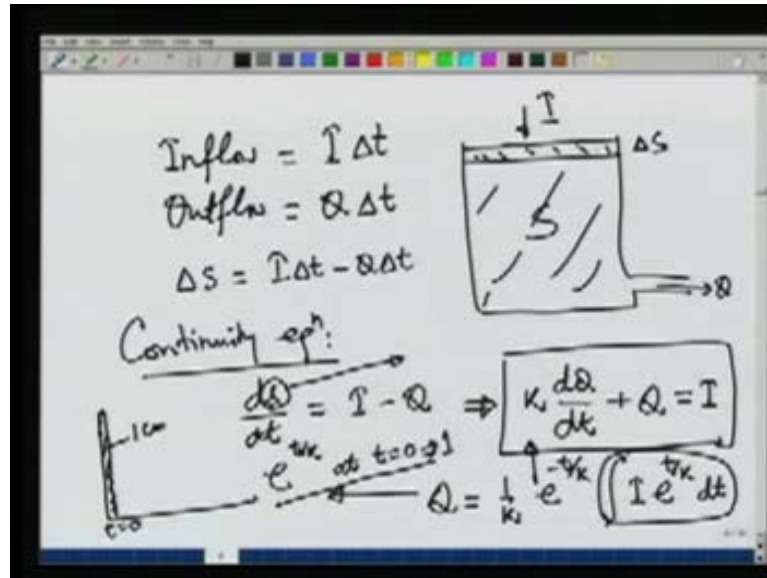 Inflow = I Δt
I
ΔS
Outflow = Q Δt
S
ΔS = IΔt - QΔt
Q
Continuity eqⁿ:
dS/dt = I - Q ⇒ K dQ/dt + Q = I
1 cm
e^{t/K} at t=0 ⇒ 1
t=0
Q = 1/K e^{-t/K} ∫ I e^{t/K} dt